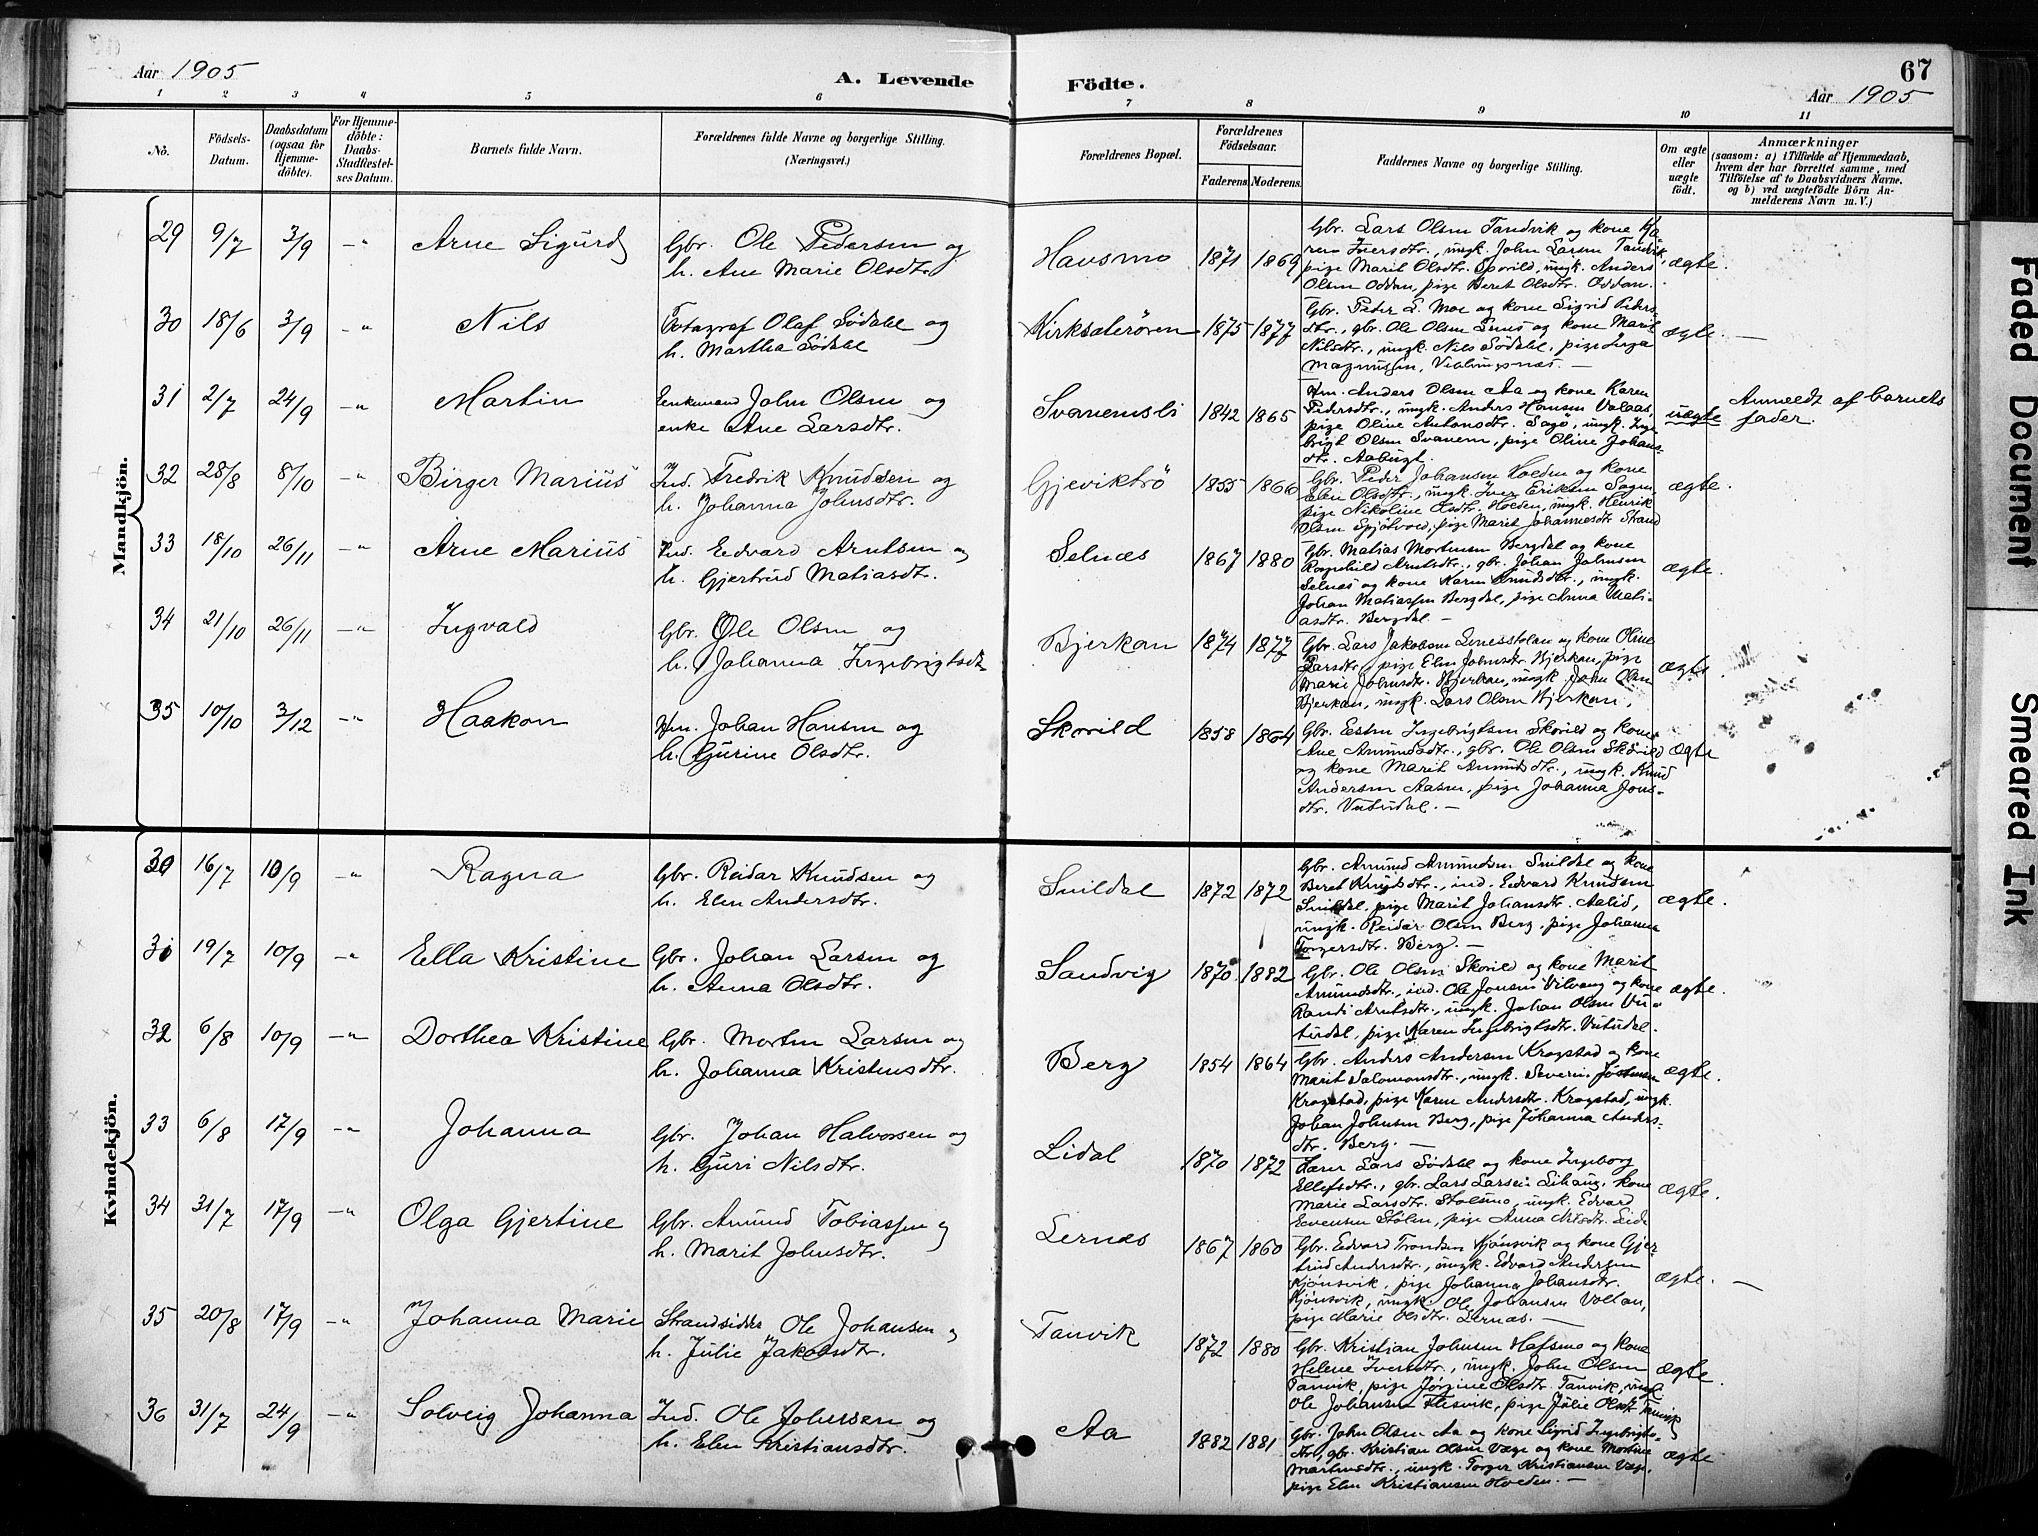 Aar 1905
A. Levende
Födte.
67
Aar 1905
1 2 3 4 5 6 7 8 9 10 11
No.
Födsels-
Datum.
Daabsdatum
(ogsaa for
Hjemme-
döbte).
For Hjemme-
döbte:
Daabs-
Stadfæstel-
ses Datum.
Barnets fulde Navn.
Forældrenes fulde Navne og borgerlige Stilling.
(Næringsvei.)
Forældrenes Bopæl.
Forældrenes
Födselsaar.
Faderens. Moderens.
Faddernes Navne og borgerlige Stilling.
Om ægte
eller
uægte
födt.
Anmærkninger
(saasom: a) i Tilfælde af Hjemmedaab,
hvem der har forrettet samme, med
Tilföielse af to Daabsvidners Navne.
og b) ved uægtefödte Börn An-
melderens Navn m. V.)
Mandkjön.
29 9/7 3/9 -"- Arne Sigurd
Gbr. Ole Pedersen og
h. Ane Marie Olsdtr.
Havsmo 1871 1869
Gbr. Lars Olsen Tandvik og kone Ka-
ren Iversdtr., ungk. John Larsen Tandvik,
pige Marit Olsdtr. Sporild, ungk. Anders
Olsen Oddan, pige Beret Olsdtr. Oddan.
ægte.
30 18/6 3/9 -"- Nils
Fotograf Olaf Södahl og
h. Martha Södahl
Kirksæterören 1875 1877
Gbr. Peder L. Moe og kone Sigrid Peders-
dtr., gbr. Ole Olsen Snus og kone Marit
Nilsdtr., ungk. Nils Södahl, pige Inga
Magnussen,
ægte.
31 2/7 24/9 -"- Martin
Enkemand John Olsen og
enke Ane Larsdtr.
Svanemsli 1842 1865
Hm. Anders Olsen Aa og kone Karen
Pedersdtr., ungk. Anders Hansen Valaas,
pige Oline Antonsdtr. Sagö, ungk. Inge-
brigt Olsen Svanem, pige Oline Johans-
dtr.
uægte
Anmeldt af barnets
fader.
32 28/8 8/10 -"- Birger Marius
Ind. Fredrik Knudsen og
h. Johanna Johnsdtr.
Gjeviktrö 1855 1866
Gbr. Peder Johansen Hoeden og kone
Elen Olsdtr., ungk. Iver Eriksen Sagen,
pige Nikoline Olsdtr. Hoeden, ungk. Henrik
Olsen Spjötvold, pige Marit Johannesdtr Strand
ægte.
33 18/10 26/11 -"- Arne Marius
Ind. Edvard Arntsen og
h. Gjertrud Matiasdtr.
Selnæs 1867 1880
Gbr. Matias Mortensen Bergdal og kone
Ragnhild Arntsdtr., gbr. Johan Johnsen
Selnæs og kone Karen Knudsdtr., ungk.
Johan Matiassen Bergdal, pige Anna Mati-
asdtr. Bergdal. —
ægte.
34 21/10 26/11 -"- Ingvald
Gbr. Ole Olsen og
h. Johanna Ingebrigtsdtr
Bjerkan 1874 1877
Gbr. Lars Jakobsen Lenesstolan og kone Oline
Larsdtr., pige Elen Johnsdtr. Bjerkan, pige
Marie Johnsdtr. Bjerkan, ungk. John Olsen
Bjerkan, ungk. Lars Olsen Bjerkan,
ægte
35 10/10 3/12 -"- Haakon
Hm. Johan Hansen og
h. Gurine Olsdtr.
Skorild 1858 1864
Gbr. Esten Ingebrigtsen Skorild og kone
Ane Amundsdtr., gbr. Ole Olsen Skorild
og kone Marit Amundsdtr., ungk. Knud
Andersen Aasen, pige Johanna Jons-
dtr. Vutudal. —
ægte
Kvindekjön.
30 16/7 10/9 -"- Ragna
Gbr. Reidar Knudsen og
h. Elen Andersdtr.
Snildal 1872 1872
Gbr. Amund Amundsen Snildal og kone
Beret Knutsdtr., ind. Edvard Knudsen
Snildal, pige Marit Johansdtr. Aalid,
ungk. Reidar Olsen Berg, pige Johanna
Torgersdtr. Berg. —
ægte.
31 19/7 10/9 -"- Ella Kristine
Gbr. Johan Larsen og
h. Anna Olsdtr.
Sandvig 1870 1882
Gbr. Ole Olsen Skorild og kone Marit
Amundsdtr., ind. Ole Jonsen Vilvang og kone
Randi Arntsdtr., ungk. Johan Olsen Vu-
tudal, pige Karen Ingebrigtsdtr. Vutudal.
ægte.
32 6/8 10/9 -"- Dorthea Kristine
Gbr. Morten Larsen og
h. Johanna Kristensdtr.
Berg 1854 1864
Gbr. Anders Andersen Krogstad og kone
Marit Salomonsdtr., ungk. Severin Jostensen
Krogstad, pige Karen Andersdtr. Krogstad, ungk.
Johan Johnsen Berg, pige Johanna Anders-
dtr. Berg. —
ægte.
33 6/8 17/9 -"- Johanna
Gbr. Johan Halvorsen og
h. Guri Nilsdtr.
Lidal 1870 1872
Lærer Lars Södahl og kone Ingeborg
Ellefsdtr., gbr. Lars Larsen Lihaug, kone
Marie Larsdtr. Stölsmo, ungk. Edvard
Evensen Stölen, pige Anna
ægte.
34 31/7 17/9 -"- Olga Gjertine
Gbr. Amund Tobiassen og
h. Marit Johnsdtr.
Lernæs 1867 1860
Gbr. Edvard Trondsen Kjönsvik og kone Gjer-
trud Andersdtr., ungk. Edvard Andersen
Kjönsvik, pige Johanna Johansdtr.
Kjönsvik, ungk. Ole Johansen Voltan,
pige Marie Olsdtr. Lernæs. —
ægte. —
35 20/8 17/9 -"- Johanna Marie
Strandsidder Ole Johansen og
h. Julie Jakobsdtr.
Tanvik 1872 1880
Gbr. Kristian Johnsen Hafsmo og kone
Helene Iversdtr., ungk. John Olsen
Tanvik, pige Jörgine Olsdtr. Tanvik, ungk
Ole Johansen Flesvik, pige Julie Olsdtr Tanvik
ægte.
36 31/7 24/9 -"- Solveig Johanna
Ind. Ole Johnsen og
h. Elen Kristiansdtr.
Aa 1882 1881
Gbr. John Olsen Aa og kone Sigrid Ingebrigts-
dtr., gbr. Kristian Olsen Vage og kone Martine
Martinusdtr., ungk. Torger Kristiansen Vage,
pige Elen Kristiansen Hoeden. —
ægte
Faded Document
Smeared Ink